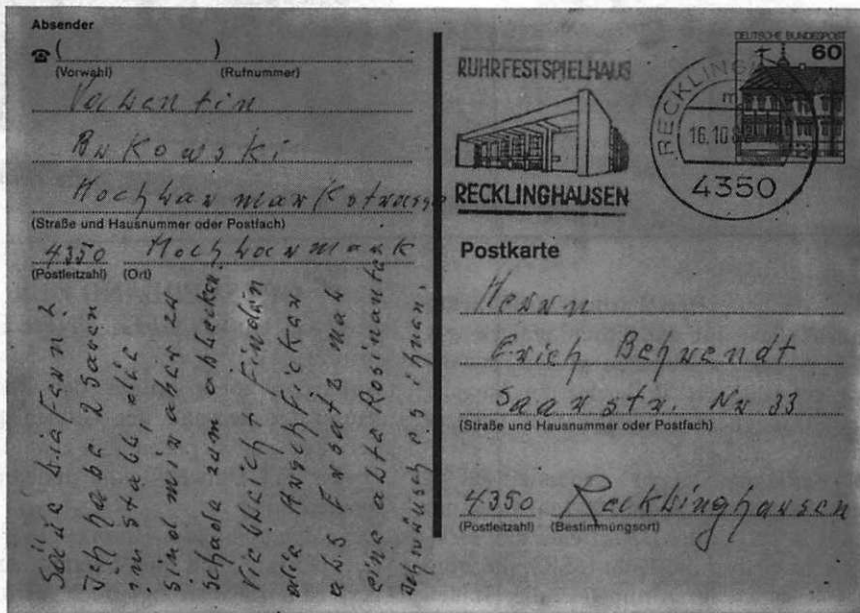 Absender
☎ ( )
(Vorwahl) (Rufnummer)
Valentin
Bukowski
Hochlarmarkstrasse
(Straße und Hausnummer oder Postfach)
4350 Hochlarmark
(Postleitzahl) (Ort)
Ich habe 2 Saven
im Stall, die
sind mir aber zu
schade zum ablecken.
Vielleicht finden
die Arschficker
als Ersatz mal
eine alte Rosinante
wünsch es ihnen.
RUHRFESTSPIELHAUS
RECKLINGHAUSEN
RECKLINGH
16.10.8
4350
DEUTSCHE BUNDESPOST
60
Postkarte
Herrn
Erich Behrendt
Saarstr. Nr 33
(Straße und Hausnummer oder Postfach)
4350 Recklinghausen
(Postleitzahl) (Bestimmungsort)